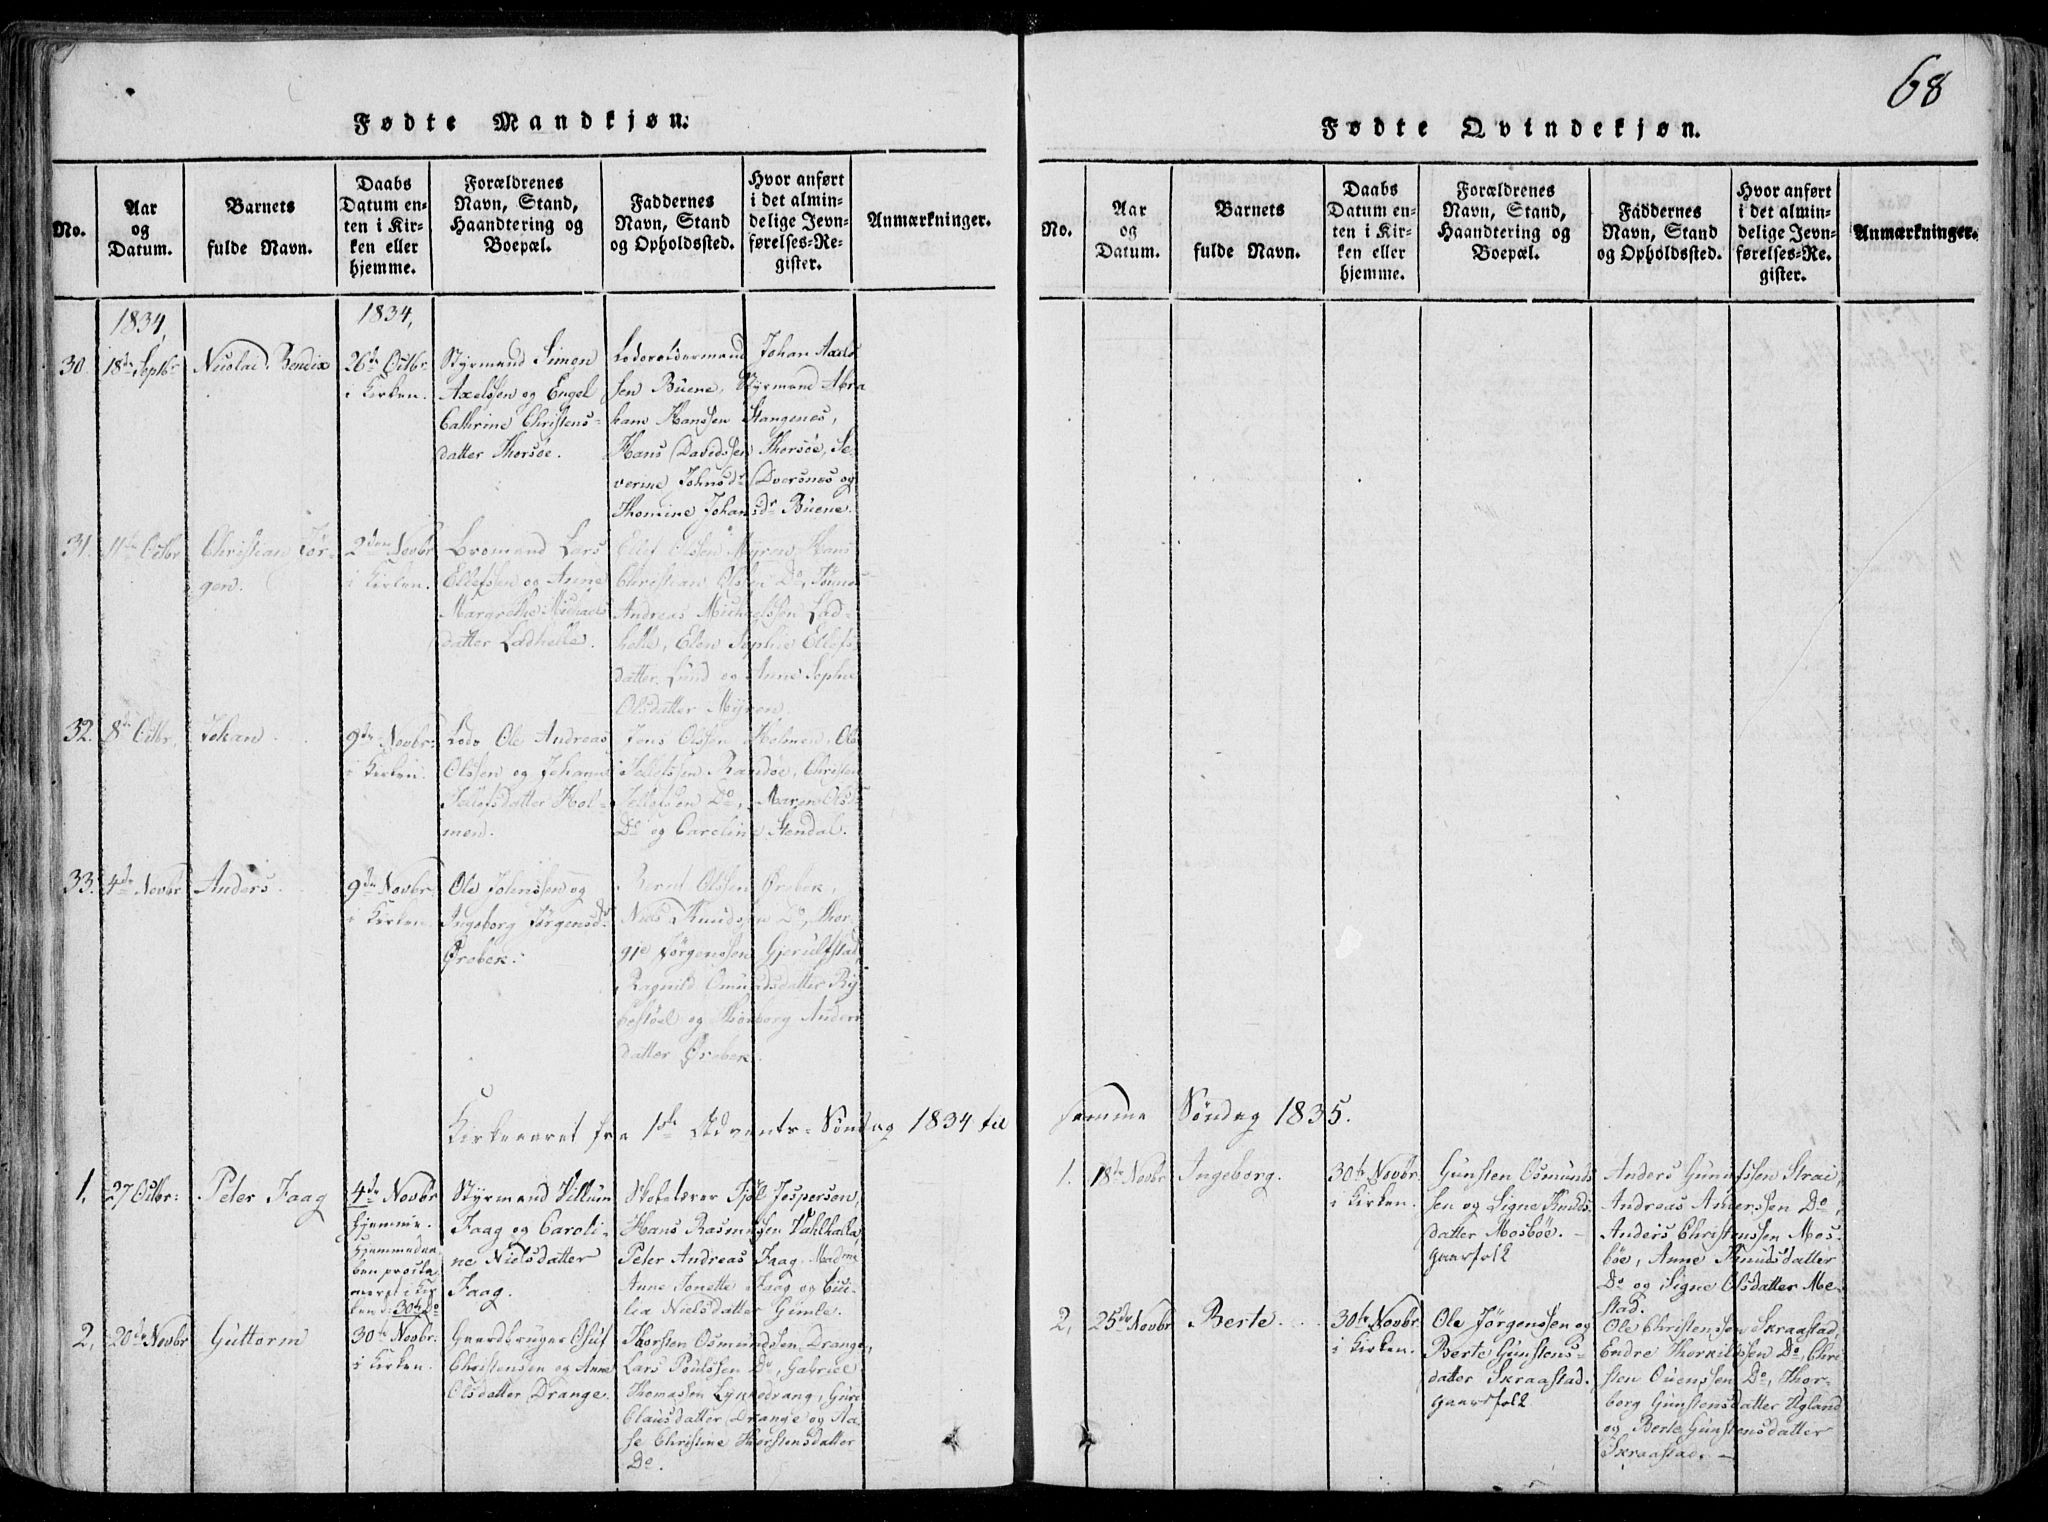 68
Fødte Mandkjøn.
No.
Aar
og
Datum.
Barnets
fulde Navn.
Daabs
Datum en-
ten i Kir-
ken eller
hjemme.
Forældrenes
Navn, Stand,
Haandtering og
Boepæl.
Faddernes
Navn, Stand
og Opholdssted.
Hvor anført
i det almin-
delige Jevn-
førelses-Re-
gister.
Anmærkninger.
1834,
1834,
30.
18de Septbr
Nicolai Bendix
26de Octbr.
i Kirken.
Styrmand Simon
Axelssen og Engel
Cathrine Christens-
datter Thorsøe.
Lodsoldermand Johan Axels
sen Buene, Styrmand Abra
ham Hanssen Stangenes,
Hans Davidssen Thorsøe, Se-
verine Johnsdr Dversnes og
Thomine Johansdr Buene.
31.
11te Octbr
Christian Jør-
gen.
2den Novbr
i Kirken.
Bromand Lars
Ellefssen og Anne
Margrethe Michaels
datter Ladhelle.
Ellef Olssen Myren, Hans
Christian Olssen Do,
Andreas Michaelssen Lad-
helle, Elen Sophie Ellefs
datter Lund og Anne Sophie
Olsdatter Myren.
32.
8de Octbr.
Johan
9de Novbr:
i Kirken.
Lods Ole Andreas
Olssen og Johanne
Tellefsdatter Hol-
men.
Jens Olssen Holmen, Ole
Tellefssen Randøe, Christen
Tellefssen Do, Maren Olsdr
Do og Caroline Stendal.
33.
4de Novbr
Anders
9de Novbr:
i Kirken.
Ole Johnssen og
Ingeborg Jørgensdr
Ørebek.
Bernt Olssen Ørebek,
Niels Knudssen Do, Thor-
gje Jørgenssen Gjerulfstad,
Ragnild Omundsdatter Ry-
bestøel og Thorborg Anders
datter Ørebek.
Kirkeaaret fra 1ste Advents-Søndag 1834 til
1.
27 Octbr:
Peter Faag
4de Novbr
hjemme.
Hjemmedaa-
ben
i Kir
ken d: 30te Do
Styrmand Villum
Faag og Caroli-
ne Nielsdatter
Faag.
Skolelærer Jespersen,
Hans Rasmussen Valhalla,
Peter Andreas Faag, Madme
Anne Jonette Faag og Ceci-
lia Nielsdatter Gimle.
2.
20de Novbr
Guttorm
30te Novbr:
i Kirken.
Gaardbruger Oluf
Christensen og Anne
Olsdatter Drange.
Thorsten Osmundssen Drange,
Lars Poulssen Do, Gabriel
Thomassen Lykkedrang, Guri
Clausdatter Drange og Aa-
se Christine Thorstensdatter
Do.
Fødte Qvindekjøn.
No.
Aar
og
Datum.
Barnets
fulde Navn.
Daabs
Datum en-
ten i Kir-
ken eller
hjemme.
Forældrenes
Navn, Stand,
Haandtering og
Boepæl.
Faddernes
Navn, Stand
og Opholdssted.
Hvor anført
i det almin-
delige Jevn-
førelses-Re-
gister.
Anmærkninger.
samme Søndag 1835.
1.
18de Novbr
Ingeborg.
30te Novbr
i Kirken.
Gunsten Osmunds
sen og Signe Knuds-
datter Mosbøe.
Gaarfolk
Anders Gunufssen Strai,
Andreas Anderssen Do,
Anders Christenssen Mos-
bøe, Anne Knudsdatter
Do og Signe Olsdatter Me-
stad.
2.
25de Novbr
Berte
30te Novbr
i Kirken.
Ole Jørgenssen og
Berte Gunstens-
datter Skraastad.
Gaarsfolk
Ole Christenssen Skraastad,
Endre Thorkildssen Do, Chri-
sten Ouenssen Do, Thor-
borg Gunstensdatter Ugland
og Berte Gunstensdatter
Skraastad.